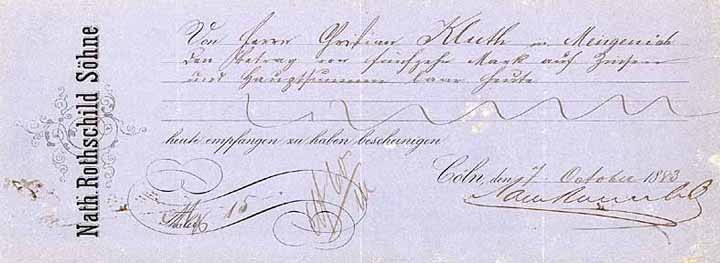 Nath. Rothschild Söhne
Von Herrn Christian Kluth in Mengenich
den Betrag von fünfzehn Mark auf Zinsen
und Hauptsumme baar heute
heute empfangen zu haben bescheinigen
Cöln, den 7. October 1883
Thaler 15